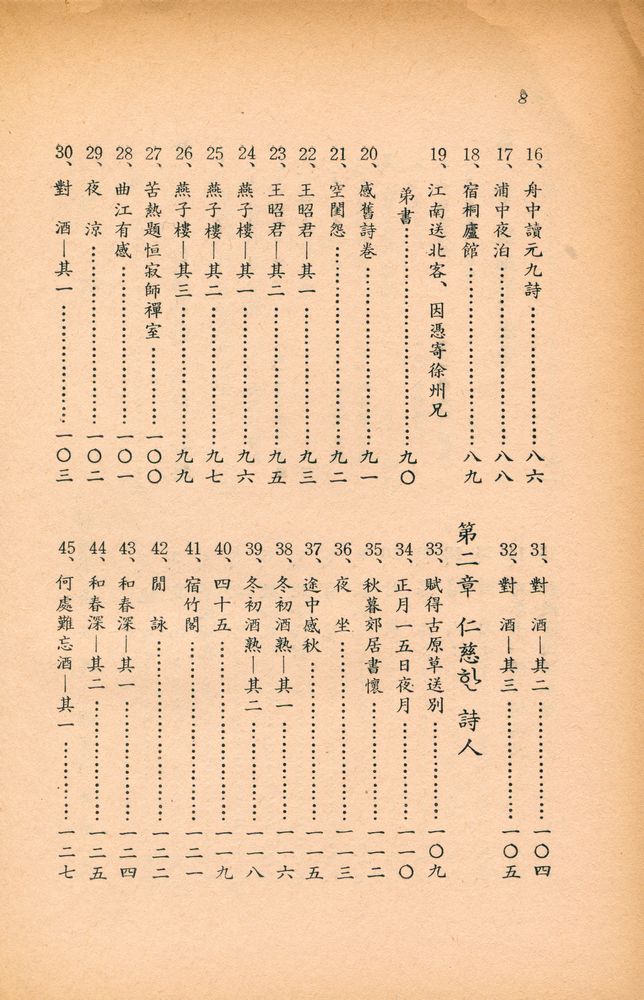 8
16、舟中讀元九詩……………………八六
17、浦中夜泊……………………八八
18、宿桐廬館……………………八九
19、江南送北客、因憑寄徐州兄
弟書……………………九〇
20、感舊詩卷……………………九一
21、空閨怨……………………九二
22、王昭君—其一……………………九三
23、王昭君—其二……………………九五
24、燕子樓—其一……………………九六
25、燕子樓—其二……………………九七
26、燕子樓—其三……………………九九
27、苦熱題恒寂師禪室……………一〇〇
28、曲江有感……………………一〇一
29、夜 涼……………………一〇二
30、對 酒—其一……………………一〇三
31、對 酒—其二……………………一〇四
32、對 酒—其三……………………一〇五
第二章 仁慈한 詩人
33、賦得古原草送別……………一〇九
34、正月一五日夜月……………一一〇
35、秋暮郊居書懷……………一一二
36、夜 坐……………………一一三
37、途中感秋……………………一一五
38、冬初酒熟—其一……………一一六
39、冬初酒熟—其二……………一一八
40、四十五……………………一一九
41、宿竹閣……………………一二一
42、閒 詠……………………一二二
43、和春深—其一……………………一二四
44、和春深—其二……………………一二五
45、何處難忘酒—其一……………一二七